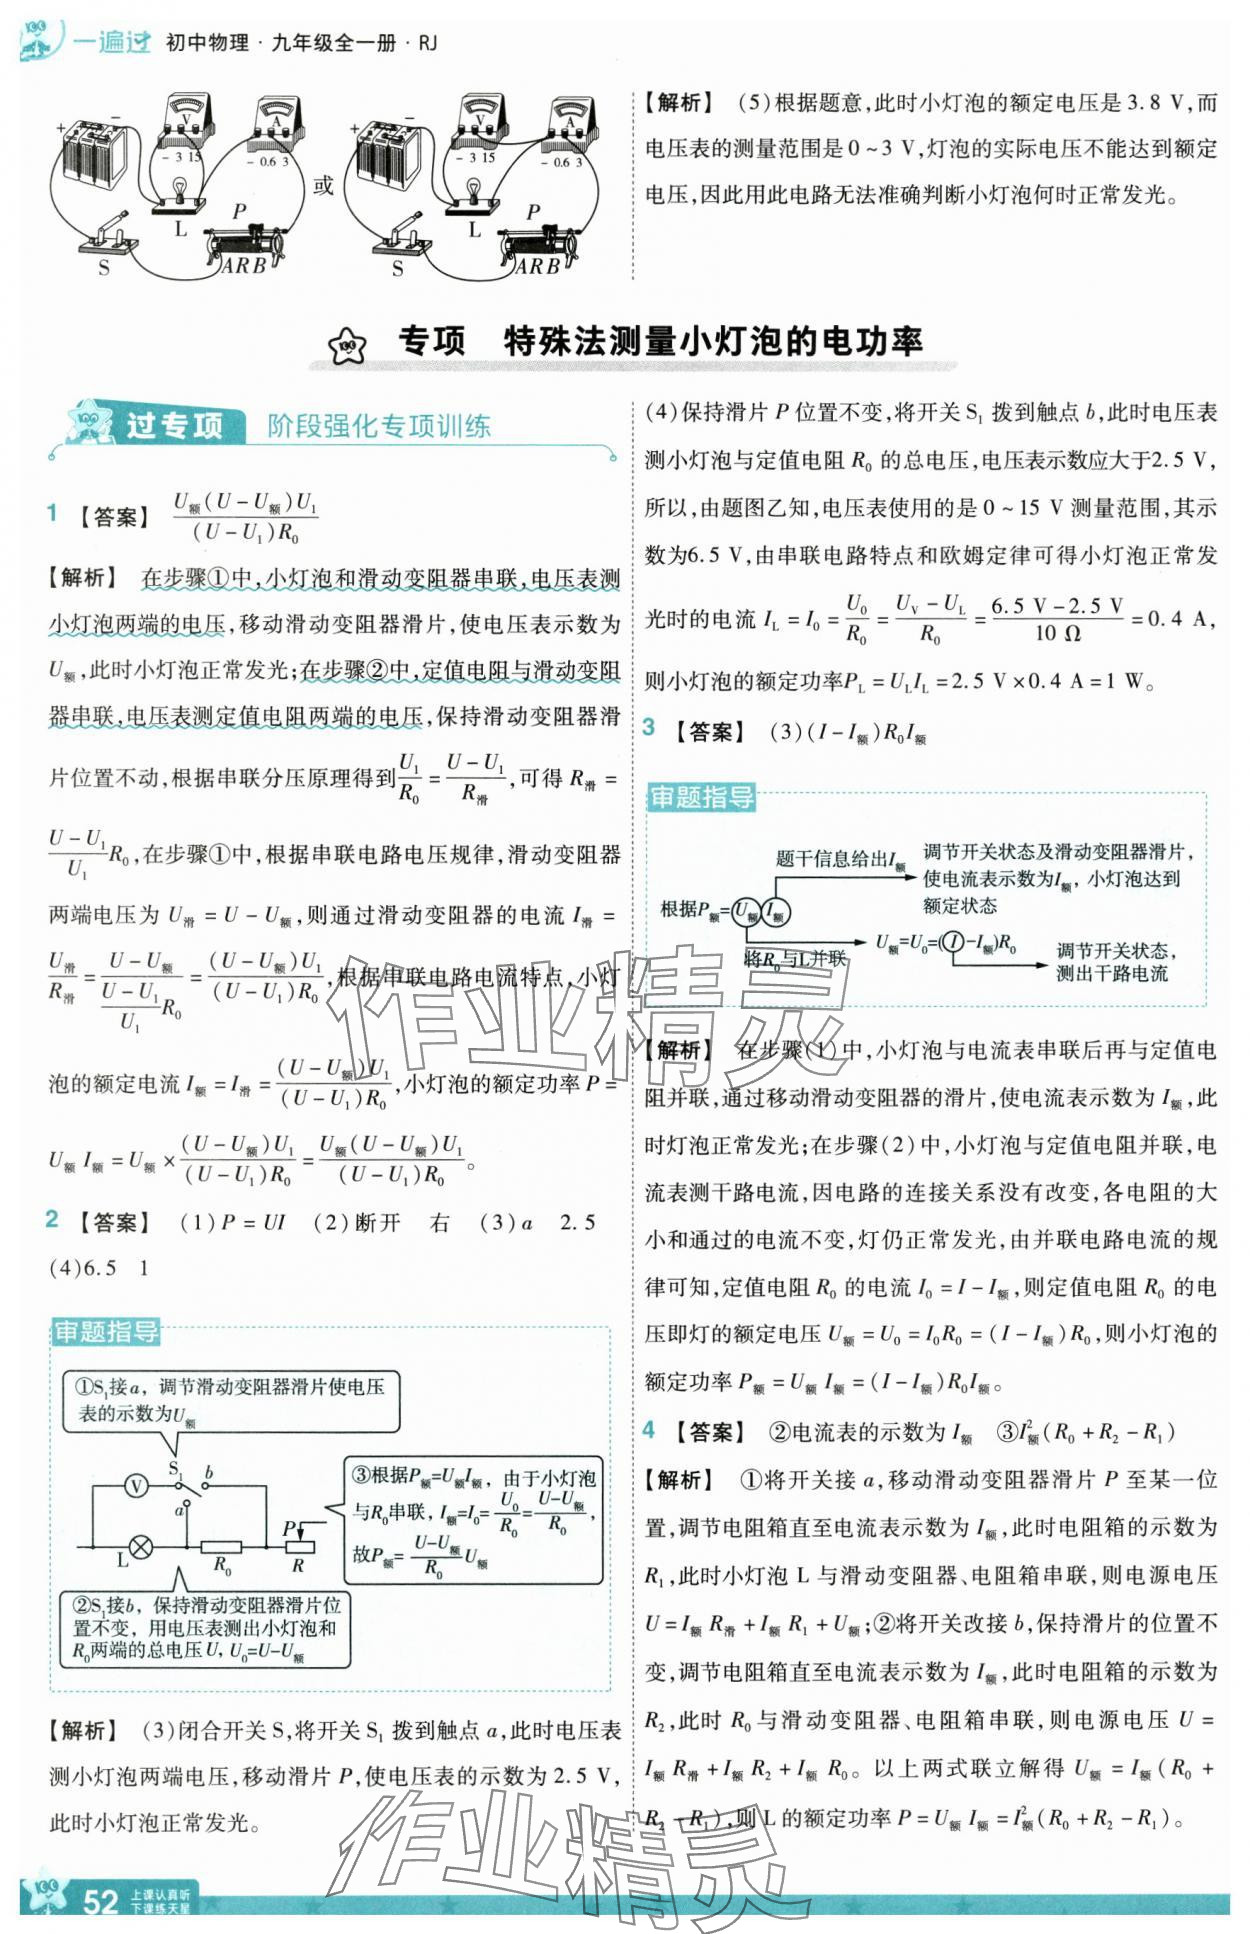 一遍过 初中物理·九年级全一册·RJ
+ - V A
- 3 15 - 0.6 3
L P
S A R B
或
+ - V A
- 3 15 - 0.6 3
L P
S A R B
【解析】 (5)根据题意,此时小灯泡的额定电压是 3.8 V,而
电压表的测量范围是 0 ~ 3 V,灯泡的实际电压不能达到额定
电压,因此用此电路无法准确判断小灯泡何时正常发光。
专项 特殊法测量小灯泡的电功率
过专项 阶段强化专项训练
1 【答案】 U额(U-U额)U₁/(U-U₁)R₀
【解析】 在步骤①中,小灯泡和滑动变阻器串联,电压表测
小灯泡两端的电压,移动滑动变阻器滑片,使电压表示数为
U额,此时小灯泡正常发光;在步骤②中,定值电阻与滑动变阻
器串联,电压表测定值电阻两端的电压,保持滑动变阻器滑
片位置不动,根据串联分压原理得到U₁/R₀=(U-U₁)/R滑,可得 R滑 =
(U-U₁)/U₁ R₀,在步骤①中,根据串联电路电压规律,滑动变阻器
两端电压为 U滑 = U - U额,则通过滑动变阻器的电流 I滑 =
U滑/R滑 = (U-U额)/((U-U₁)/U₁ R₀) = (U-U额)U₁/(U-U₁)R₀,根据串联电路电流特点,小灯
泡的额定电流 I额 = I滑 = (U-U额)U₁/(U-U₁)R₀,小灯泡的额定功率 P =
U额 I额 = U额 × (U-U额)U₁/(U-U₁)R₀ = U额(U-U额)U₁/(U-U₁)R₀。
2 【答案】 (1)P = UI (2)断开 右 (3)a 2.5
(4)6.5 1
审题指导
①S₁接a，调节滑动变阻器滑片使电压
表的示数为U额
V S₁ b a
L R₀ P R
③根据P额=U额I额，由于小灯泡
与R₀串联，I额=I₀=U₀/R₀=(U-U额)/R₀，
故P额=(U-U额)/R₀ U额
②S₁接b，保持滑动变阻器滑片位
置不变，用电压表测出小灯泡和
R₀两端的总电压U, U₀=U-U额
【解析】 (3)闭合开关 S,将开关 S₁ 拨到触点 a,此时电压表
测小灯泡两端电压,移动滑片 P,使电压表的示数为 2.5 V,
此时小灯泡正常发光。
(4)保持滑片 P 位置不变,将开关 S₁ 拨到触点 b,此时电压表
测小灯泡与定值电阻 R₀ 的总电压,电压表示数应大于2.5 V,
所以,由题图乙知,电压表使用的是 0 ~ 15 V 测量范围,其示
数为6.5 V,由串联电路特点和欧姆定律可得小灯泡正常发
光时的电流 I_L = I₀ = U₀/R₀ = (U_V-U_L)/R₀ = (6.5 V-2.5 V)/10 Ω = 0.4 A,
则小灯泡的额定功率P_L = U_L I_L = 2.5 V×0.4 A = 1 W。
3 【答案】 (3)(I-I额)R₀I额
审题指导
根据P额=U额 I额
题干信息给出I额
调节开关状态及滑动变阻器滑片，
使电流表示数为I额，小灯泡达到
额定状态
将R₀与L并联
U额=U₀=(I-I额)R₀
调节开关状态，
测出干路电流
【解析】 在步骤(1)中,小灯泡与电流表串联后再与定值电
阻并联,通过移动滑动变阻器的滑片,使电流表示数为 I额,此
时灯泡正常发光;在步骤(2)中,小灯泡与定值电阻并联,电
流表测干路电流,因电路的连接关系没有改变,各电阻的大
小和通过的电流不变,灯仍正常发光,由并联电路电流的规
律可知,定值电阻 R₀ 的电流 I₀ = I - I额,则定值电阻 R₀ 的电
压即灯的额定电压 U额 = U₀ = I₀R₀ = (I-I额)R₀,则小灯泡的
额定功率 P额 = U额 I额 = (I-I额)R₀I额。
4 【答案】 ②电流表的示数为 I额 ③I²额(R₀+R₂-R₁)
【解析】 ①将开关接 a,移动滑动变阻器滑片 P 至某一位
置,调节电阻箱直至电流表示数为 I额,此时电阻箱的示数为
R₁,此时小灯泡 L 与滑动变阻器、电阻箱串联,则电源电压
U = I额 R滑 + I额 R₁ + U额;②将开关改接 b,保持滑片的位置不
变,调节电阻箱直至电流表示数为 I额,此时电阻箱的示数为
R₂,此时 R₀ 与滑动变阻器、电阻箱串联,则电源电压 U =
I额 R滑 + I额 R₂ + I额 R₀。以上两式联立解得 U额 = I额(R₀ +
R₂-R₁),则 L 的额定功率 P = U额 I额 = I²额(R₀+R₂-R₁)。
作业精灵
作业精灵
52 上课认真听
下课练天星